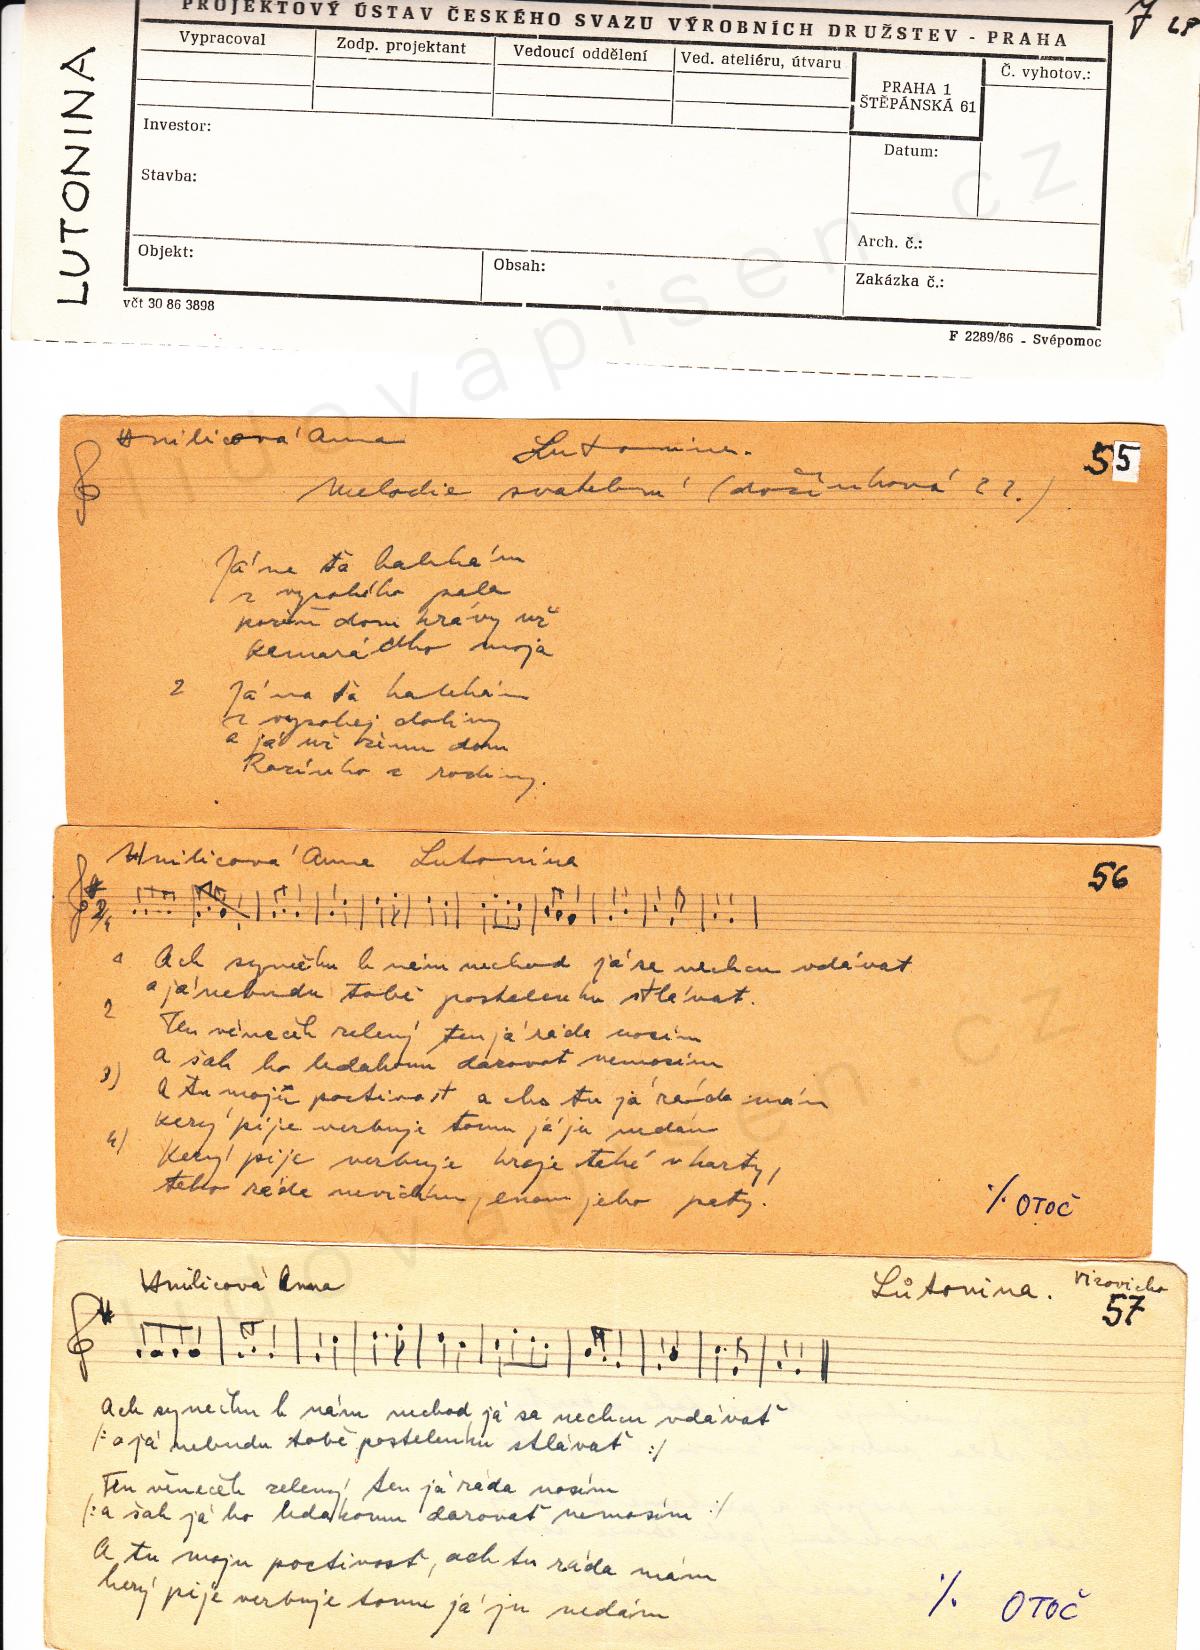 PROJEKTOVÝ ÚSTAV ČESKÉHO SVAZU VÝROBNÍCH DRUŽSTEV - PRAHA
7
LUTONINA
Vypracoval
Zodp. projektant
Vedoucí oddělení
Ved. ateliéru, útvaru
PRAHA 1
ŠTĚPÁNSKÁ 61
Č. vyhotov.:
Investor:
Datum:
Stavba:
Arch. č.:
Objekt:
Obsah:
Zakázka č.:
včt 30 86 3898
F 2289/86 - Svépomoc
lidovapisen.cz
Hnilicová Anna
Lutonina.
55
Melodie svatební (dožínková ??.)
Já na ťa
z vysokého pola
dom krávy už
kamarádko moja
2 Já na ťa
z vysokej doliny
a já už ženu dom
Rozinko z rodiny.
Hnilicová Anna Lutonina
56
2/4
1 Ach synečku k nám nechod já se nechcu vdávat
a já nebudu tobě postelenku stlávat.
2 Ten věneček zelený ten já ráda nosím
a šak ho ledakomu darovat nemosím
3) A tu moju poctivost a cho tu já ráda mám
kerý pije verbuje tomu já ju nedám
4) Kerý pije verbuje hraje také v karty,
teho ráda nevidím jenom jeho paty.
./. OTOČ
Hnilicová Anna
Lůtonina. Vizovicko
57
Ach synečku k nám nechod já sa nechcu vdávať
/: a já nebudu tobě postelenku stlávať :/
Ten věneček zelený ten já ráda nosím
/: a šak já ho ledakomu darovať nemosím :/
A tu moju poctivosť, ach tu ráda mám
kerý pije verbuje tomu já ju nedám
./. OTOČ